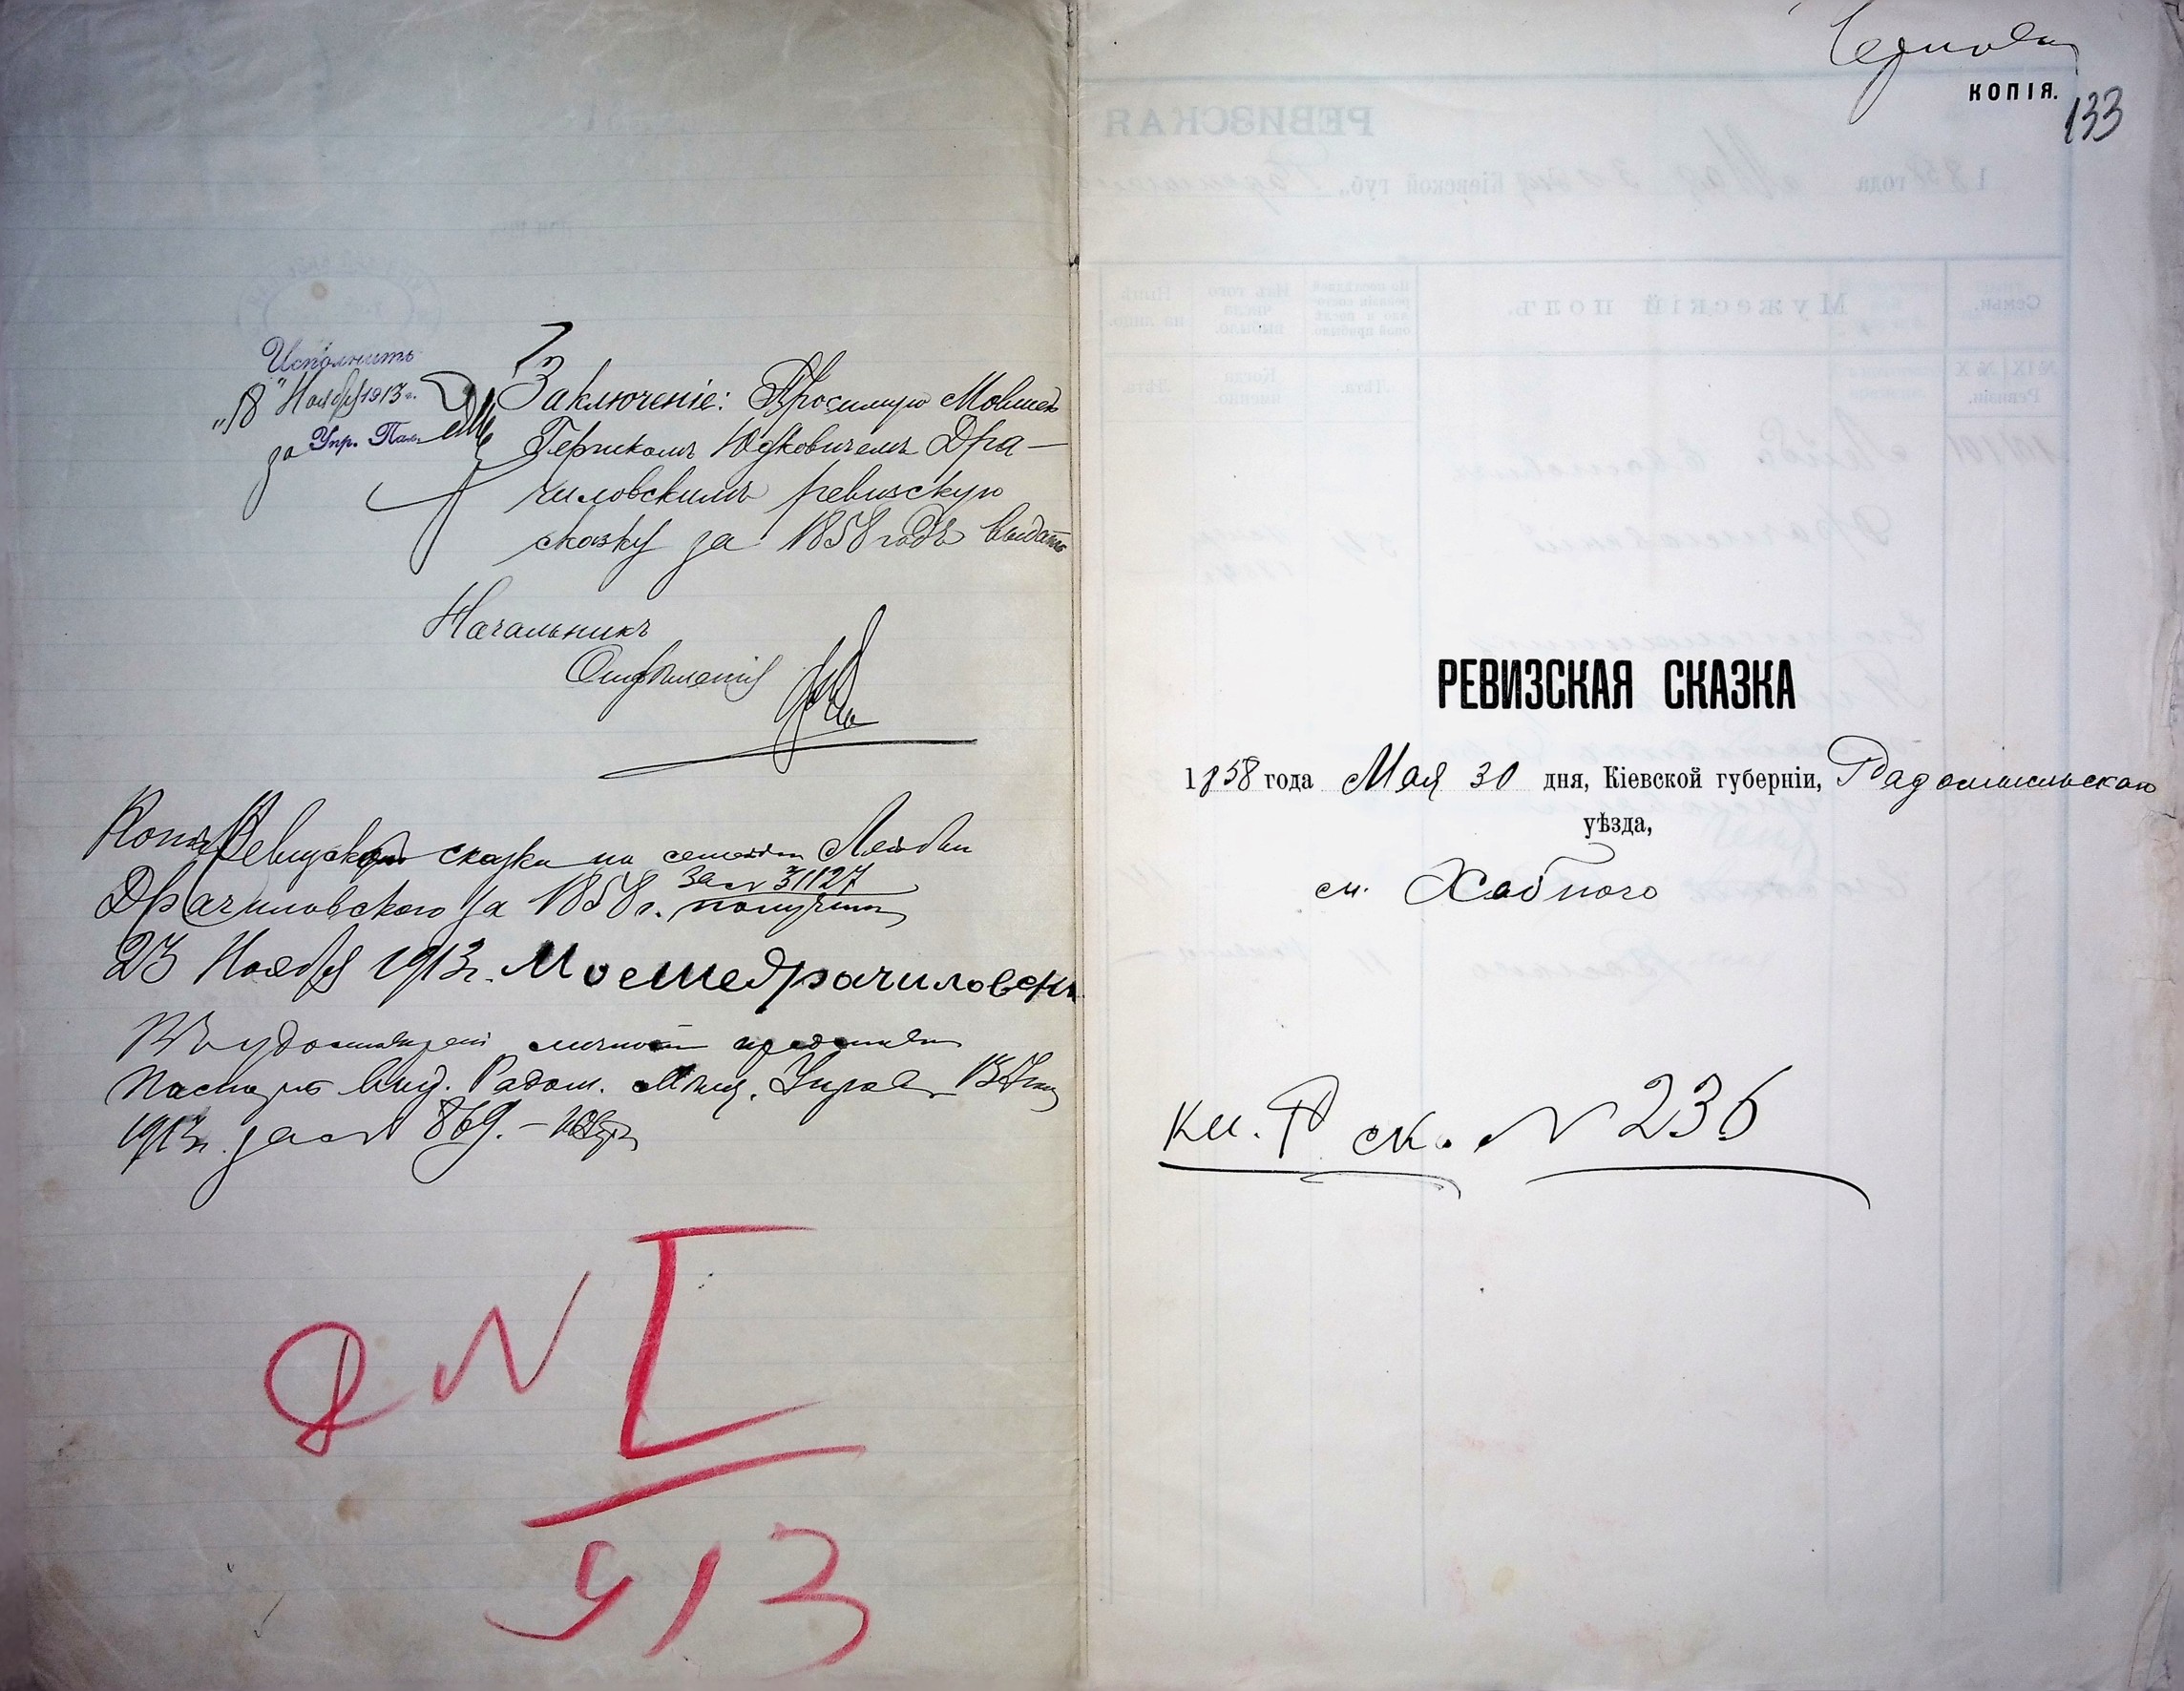 Исполнить
"18" Ноября 1913 г.
за Упр. Пал.
Заключеніе: Просимую Мовшею
Гершкомъ Юдковичемъ Дра-
чиловскимъ ревизскую
сказку за 1858 годъ выдать
Начальникъ
Отдѣленія
Копію Ревизской сказки на семейство Лейбы
Драчиловского за 1858 г. за № 31127 получилъ
23 Ноября 1913 г. Мошедрачиловски
Въ удостовѣреніе личности представленъ
паспортъ выд. Радом. Мѣщ. Управ.
1913 г. за № 869.
№ I
913
КОПІЯ.
133
РЕВИЗСКАЯ СКАЗКА
1858 года Мая 30 дня, Кіевской губерніи, Радомысльскаго
уѣзда,
м. Хабного
кн. Р ск. № 236